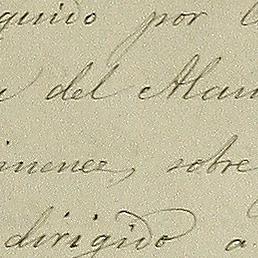 guido por
del Alam
imenez, sobre
dirigido a